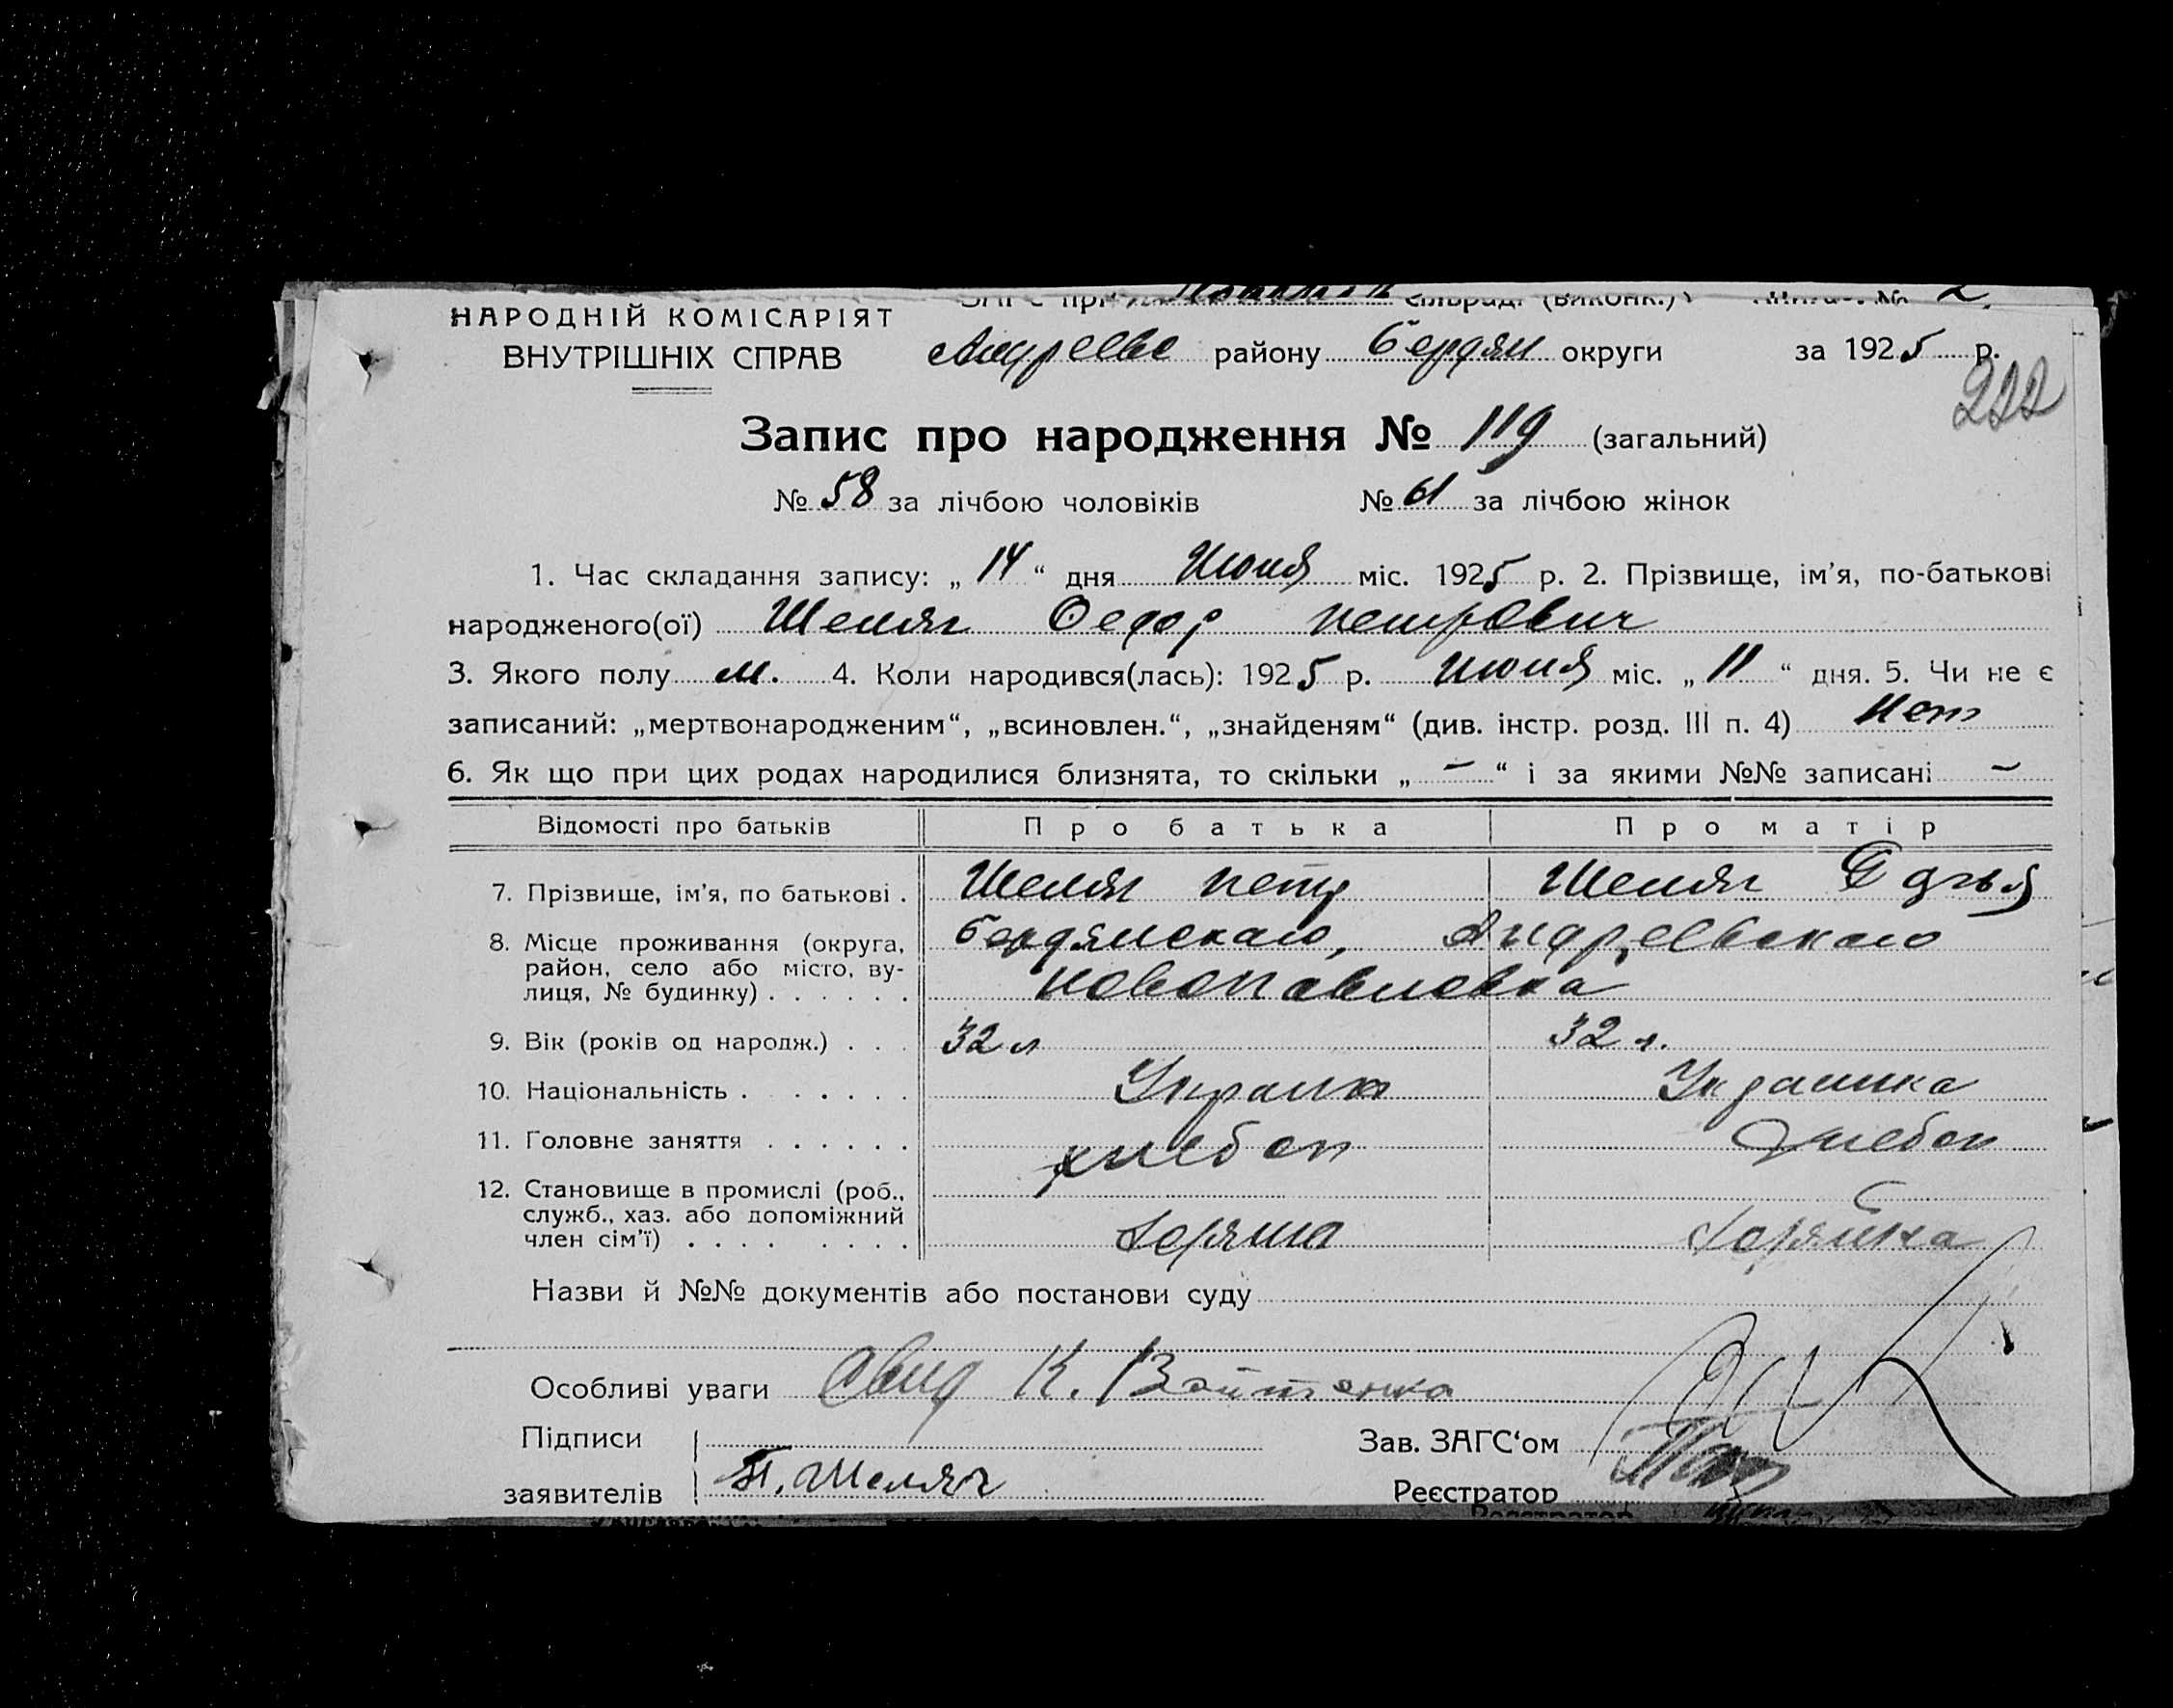 НАРОДНІЙ КОМІСАРІЯТ
ВНУТРІШНІХ СПРАВ
ЗАГС при сільраді (виконк.) Книга № 2
Андреевс району Бердян округи за 1925 р.
222
Запис про народження № 119 (загальний)
№ 58 за лічбою чоловіків № 61 за лічбою жінок
1. Час складання запису: „ 14 “ дня Июня міс. 1925 р. 2. Прізвище, ім’я, по-батькові
народженого(ої) Шеляг Федор Петрович
3. Якого полу м. 4. Коли народився(лась): 1925 р. Июня міс. „ 11 “ дня. 5. Чи не є
записаний: „мертвонародженим“, „всиновлен.“, „знайденям“ (див. інстр. розд. III п. 4) Нет
6. Як що при цих родах народилися близнята, то скільки „ – “ і за якими №№ записані –
Відомості про батьків Про батька Про матір
7. Прізвище, ім’я, по батькові . Шеляг Петр Шеляг
8. Місце проживання (округа, Бердянскаго, Андреевскаго
район, село або місто, ву-
лиця, № будинку) . . . . . . Новопавловка
9. Вік (років од народж.) . . . 32 л 32 л.
10. Національність . . . . . . . Украинка
11. Головне заняття . . . . . . хлебоп хлебоп
12. Становище в промислі (роб.,
служб., хаз. або допоміжний
член сім’ї) . . . . . . . .
Назви й №№ документів або постанови суду
Особливі уваги К.
Підписи Зав. ЗАГС‘ом
заявителів П. Шеляг Реєстратор
Реєстратор